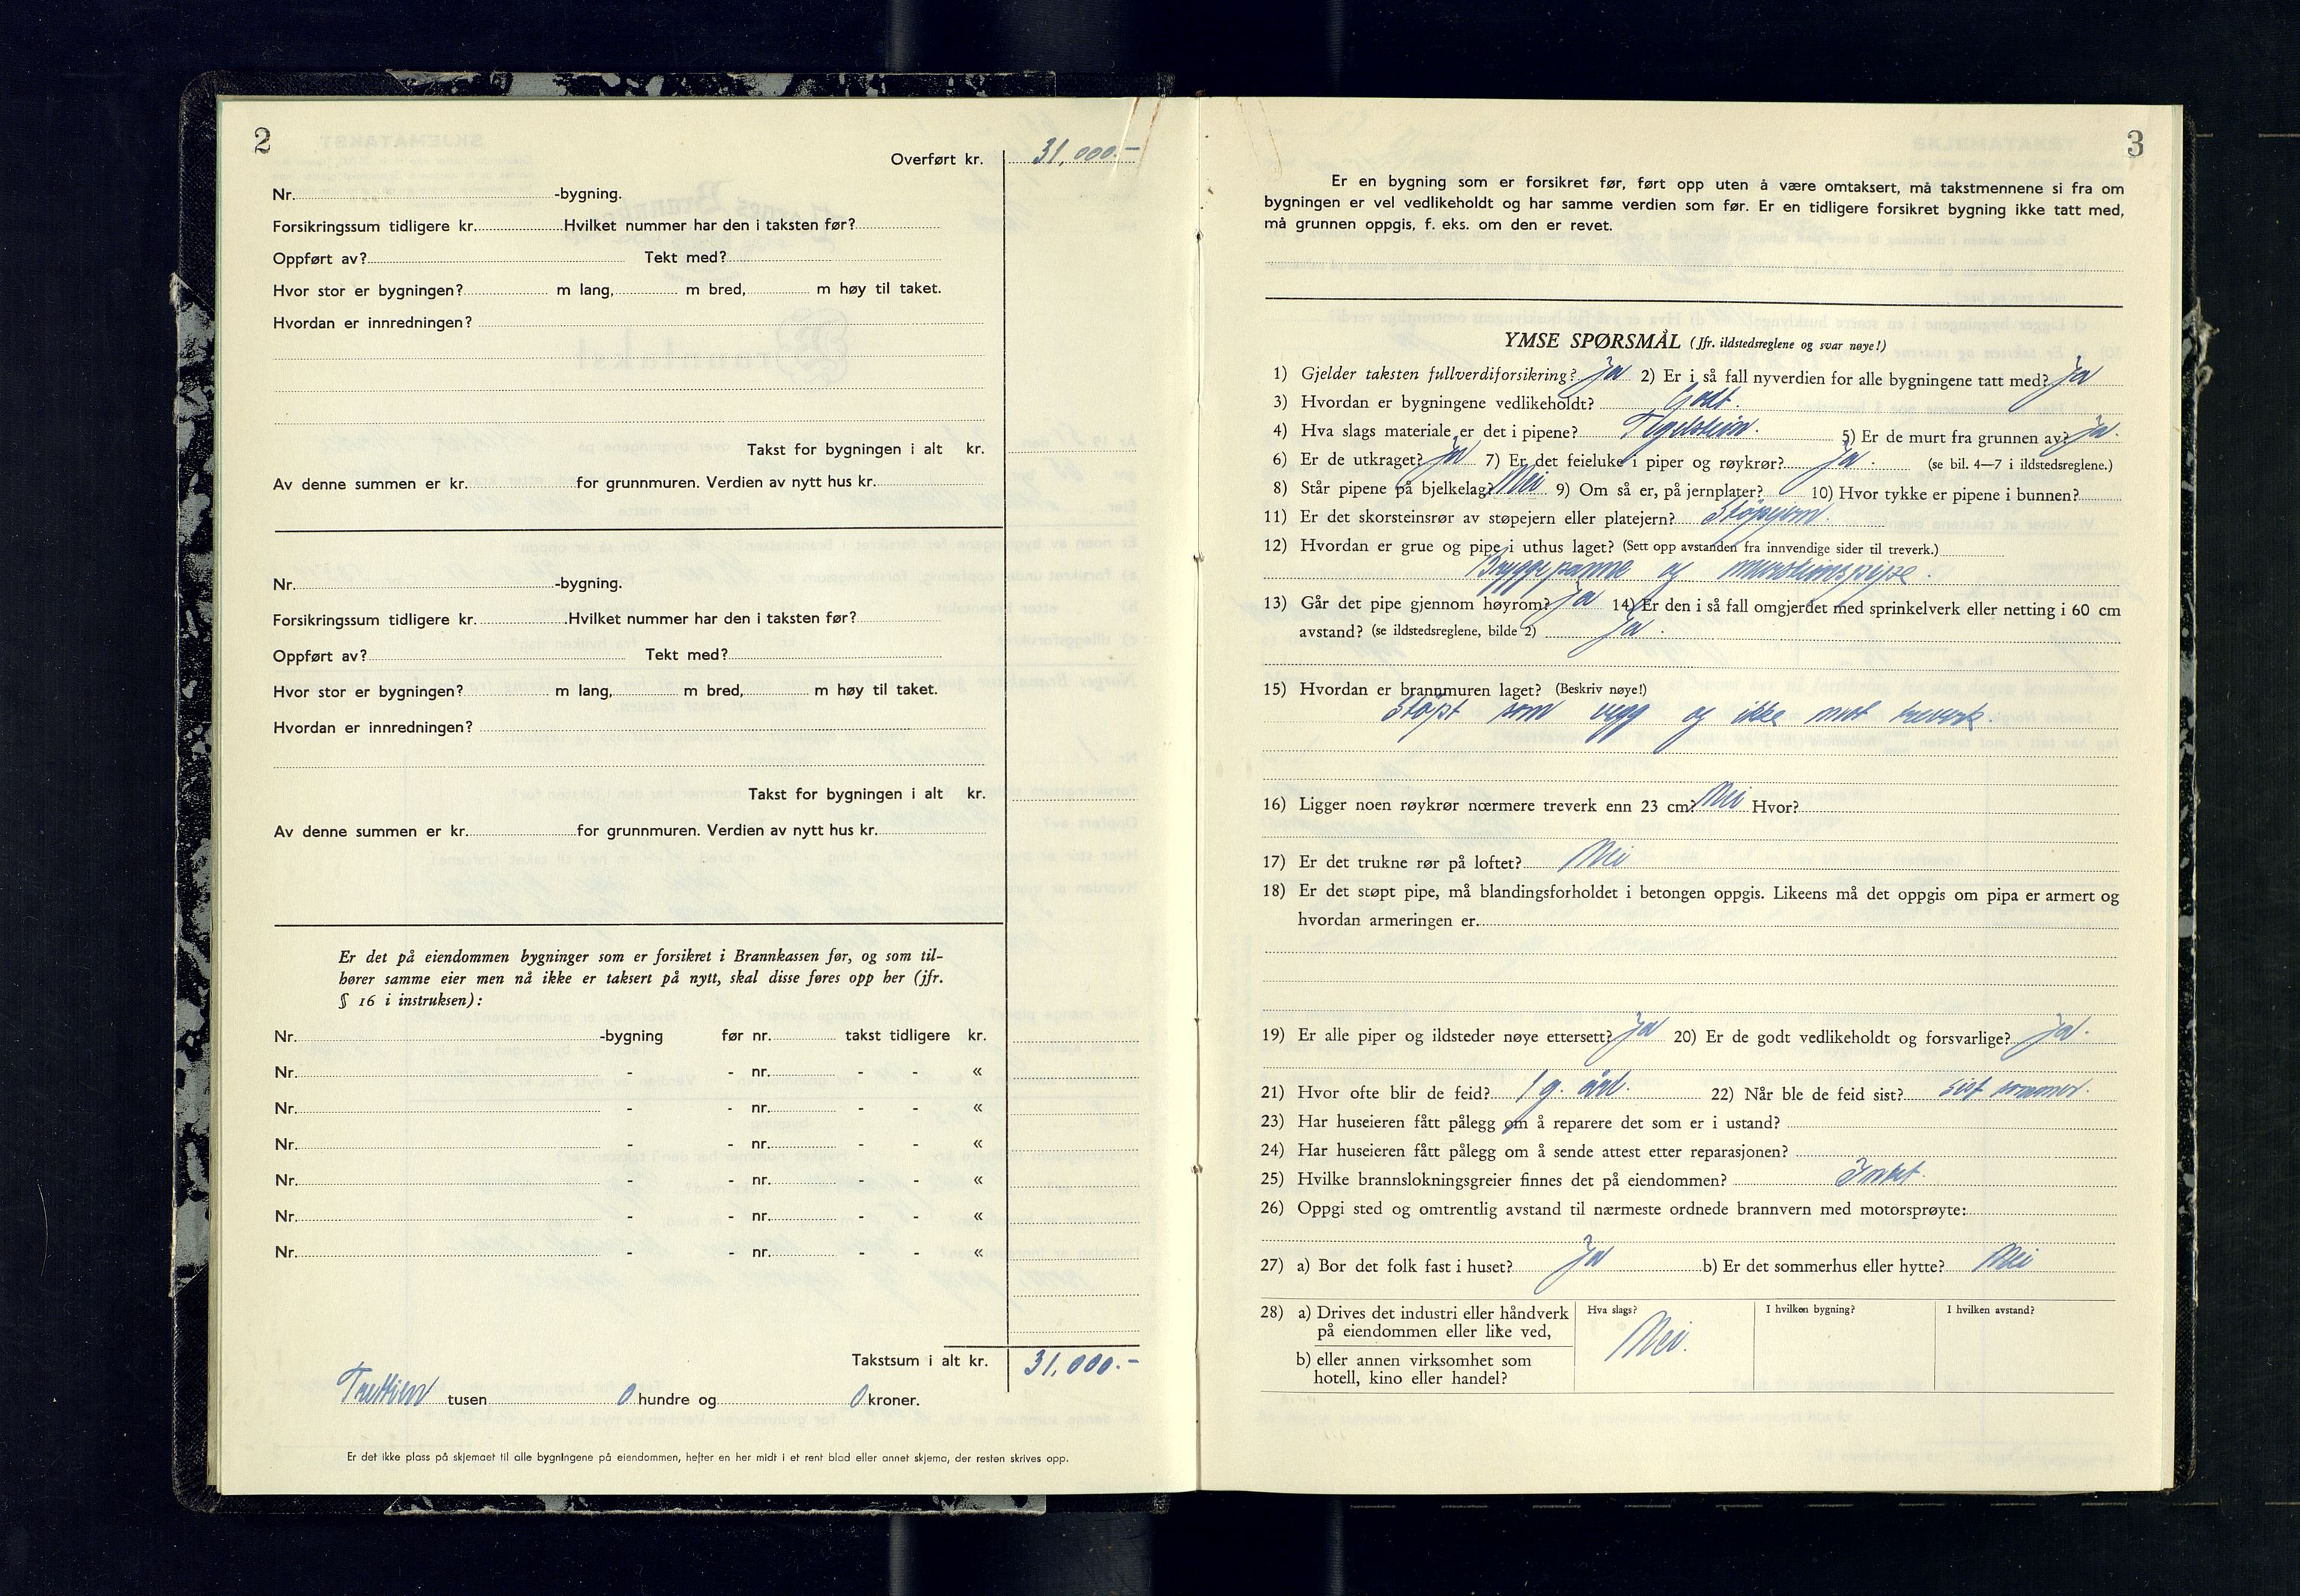 2
Overført kr. 31,000.-
Nr. -bygning.
Forsikringssum tidligere kr. Hvilket nummer har den i taksten før?
Oppført av? Tekt med?
Hvor stor er bygningen? m lang, m bred, m høy til taket.
Hvordan er innredningen?
Takst for bygningen i alt kr.
Av denne summen er kr. for grunnmuren. Verdien av nytt hus kr.
Nr. -bygning.
Forsikringssum tidligere kr. Hvilket nummer har den i taksten før?
Oppført av? Tekt med?
Hvor stor er bygningen? m lang, m bred, m høy til taket.
Hvordan er innredningen?
Takst for bygningen i alt kr.
Av denne summen er kr. for grunnmuren. Verdien av nytt hus kr.
Er det på eiendommen bygninger som er forsikret i Brannkassen før, og som til-
hører samme eier men nå ikke er taksert på nytt, skal disse føres opp her (jfr.
§ 16 i instruksen):
Nr. -bygning før nr. takst tidligere kr.
Nr. - - nr. - - «
Nr. - - nr. - - «
Nr. - - nr. - - «
Nr. - - nr. - - «
Nr. - - nr. - - «
Nr. - - nr. - - «
Takstsum i alt kr. 31,000.-
Trettien tusen 0 hundre og 0 kroner.
Er det ikke plass på skjemaet til alle bygningene på eiendommen, hefter en her midt i et rent blad eller annet skjema, der resten skrives opp.
3
Er en bygning som er forsikret før, ført opp uten å være omtaksert, må takstmennene si fra om
bygningen er vel vedlikeholdt og har samme verdien som før. Er en tidligere forsikret bygning ikke tatt med,
må grunnen oppgis, f. eks. om den er revet.
YMSE SPØRSMÅL (Jfr. ildstedsreglene og svar nøye!)
1) Gjelder taksten fullverdiforsikring? Ja 2) Er i så fall nyverdien for alle bygningene tatt med? Ja
3) Hvordan er bygningene vedlikeholdt? Godt.
4) Hva slags materiale er det i pipene? Teglstein. 5) Er de murt fra grunnen av? Ja.
6) Er de utkraget? Ja 7) Er det feieluke i piper og røykrør? Ja. (se bil. 4—7 i ildstedsreglene.)
8) Står pipene på bjelkelag? Nei 9) Om så er, på jernplater? 10) Hvor tykke er pipene i bunnen?
11) Er det skorsteinsrør av støpejern eller platejern? Støpejern.
12) Hvordan er grue og pipe i uthus laget? (Sett opp avstanden fra innvendige sider til treverk.)
Bryggepanne og murstenspipe.
13) Går det pipe gjennom høyrom? Ja 14) Er den i så fall omgjerdet med sprinkelverk eller netting i 60 cm
avstand? (se ildstedsreglene, bilde 2) Ja.
15) Hvordan er brannmuren laget? (Beskriv nøye!)
Støpt som vegg og ikke mot treverk.
16) Ligger noen røykrør nærmere treverk enn 23 cm? Nei Hvor?
17) Er det trukne rør på loftet? Nei
18) Er det støpt pipe, må blandingsforholdet i betongen oppgis. Likeens må det oppgis om pipa er armert og
hvordan armeringen er.
19) Er alle piper og ildsteder nøye ettersett? Ja 20) Er de godt vedlikeholdt og forsvarlige? Ja.
21) Hvor ofte blir de feid? 1 g. årl. 22) Når ble de feid sist? sist sommer.
23) Har huseieren fått pålegg om å reparere det som er i ustand?
24) Har huseieren fått pålegg om å sende attest etter reparasjonen?
25) Hvilke brannslokningsgreier finnes det på eiendommen?
26) Oppgi sted og omtrentlig avstand til nærmeste ordnede brannvern med motorsprøyte:
27) a) Bor det folk fast i huset? Ja b) Er det sommerhus eller hytte? Nei
28) a) Drives det industri eller håndverk
på eiendommen eller like ved,
b) eller annen virksomhet som
hotell, kino eller handel?
Hva slags? I hvilken bygning? I hvilken avstand?
Nei.